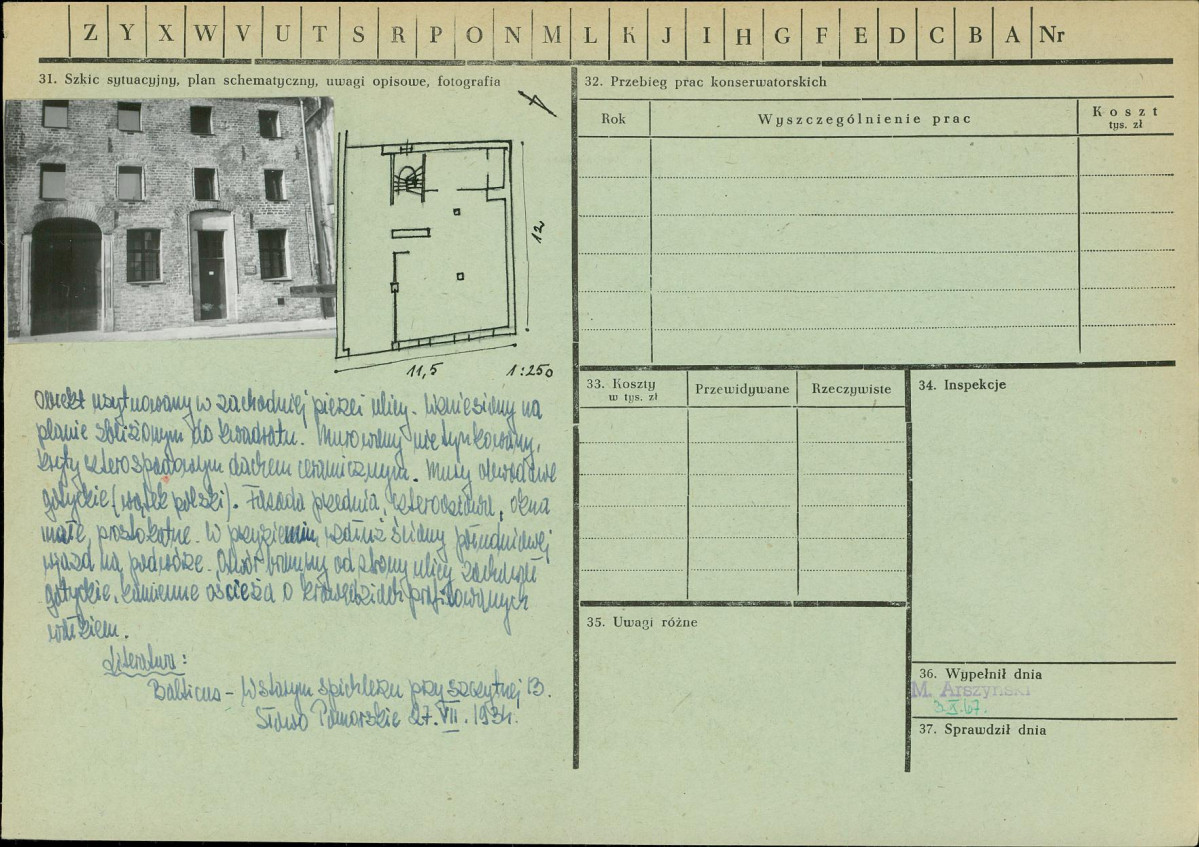 Z Y X W V U T S R P O N M L K J I H G F E D C B A Nr
31. Szkic sytuacyjny, plan schematyczny, uwagi opisowe, fotografia
12
11,5
1:250
Obiekt usytuowany w zachodniej pierzei ulicy. Wzniesiony na
planie zbliżonym do kwadratu. Murowany nie tynkowany,
kryty czterospadowym dachem ceramicznym. Mury obwodowe
gotyckie (wątek polski). Fasada przednia, czteroosiowa, okna
małe, prostokątne. W przyziemiu, wzdłuż ściany południowej
wjazd na podwórze. Otwór bramny od strony ulicy zachował
gotyckie, kamienne ościeża o krawędziach profilowanych
wałkiem.
Literatura:
Balticus - W starym spichlerzu przy szczytnej 13.
Słowo Pomorskie 27. VII. 1934.
32. Przebieg prac konserwatorskich
Rok
Wyszczególnienie prac
Koszt
tys. zł
33. Koszty
w tys. zł
Przewidywane
Rzeczywiste
34. Inspekcje
35. Uwagi różne
36. Wypełnił dnia
M. Arszyński
3.X.67.
37. Sprawdził dnia